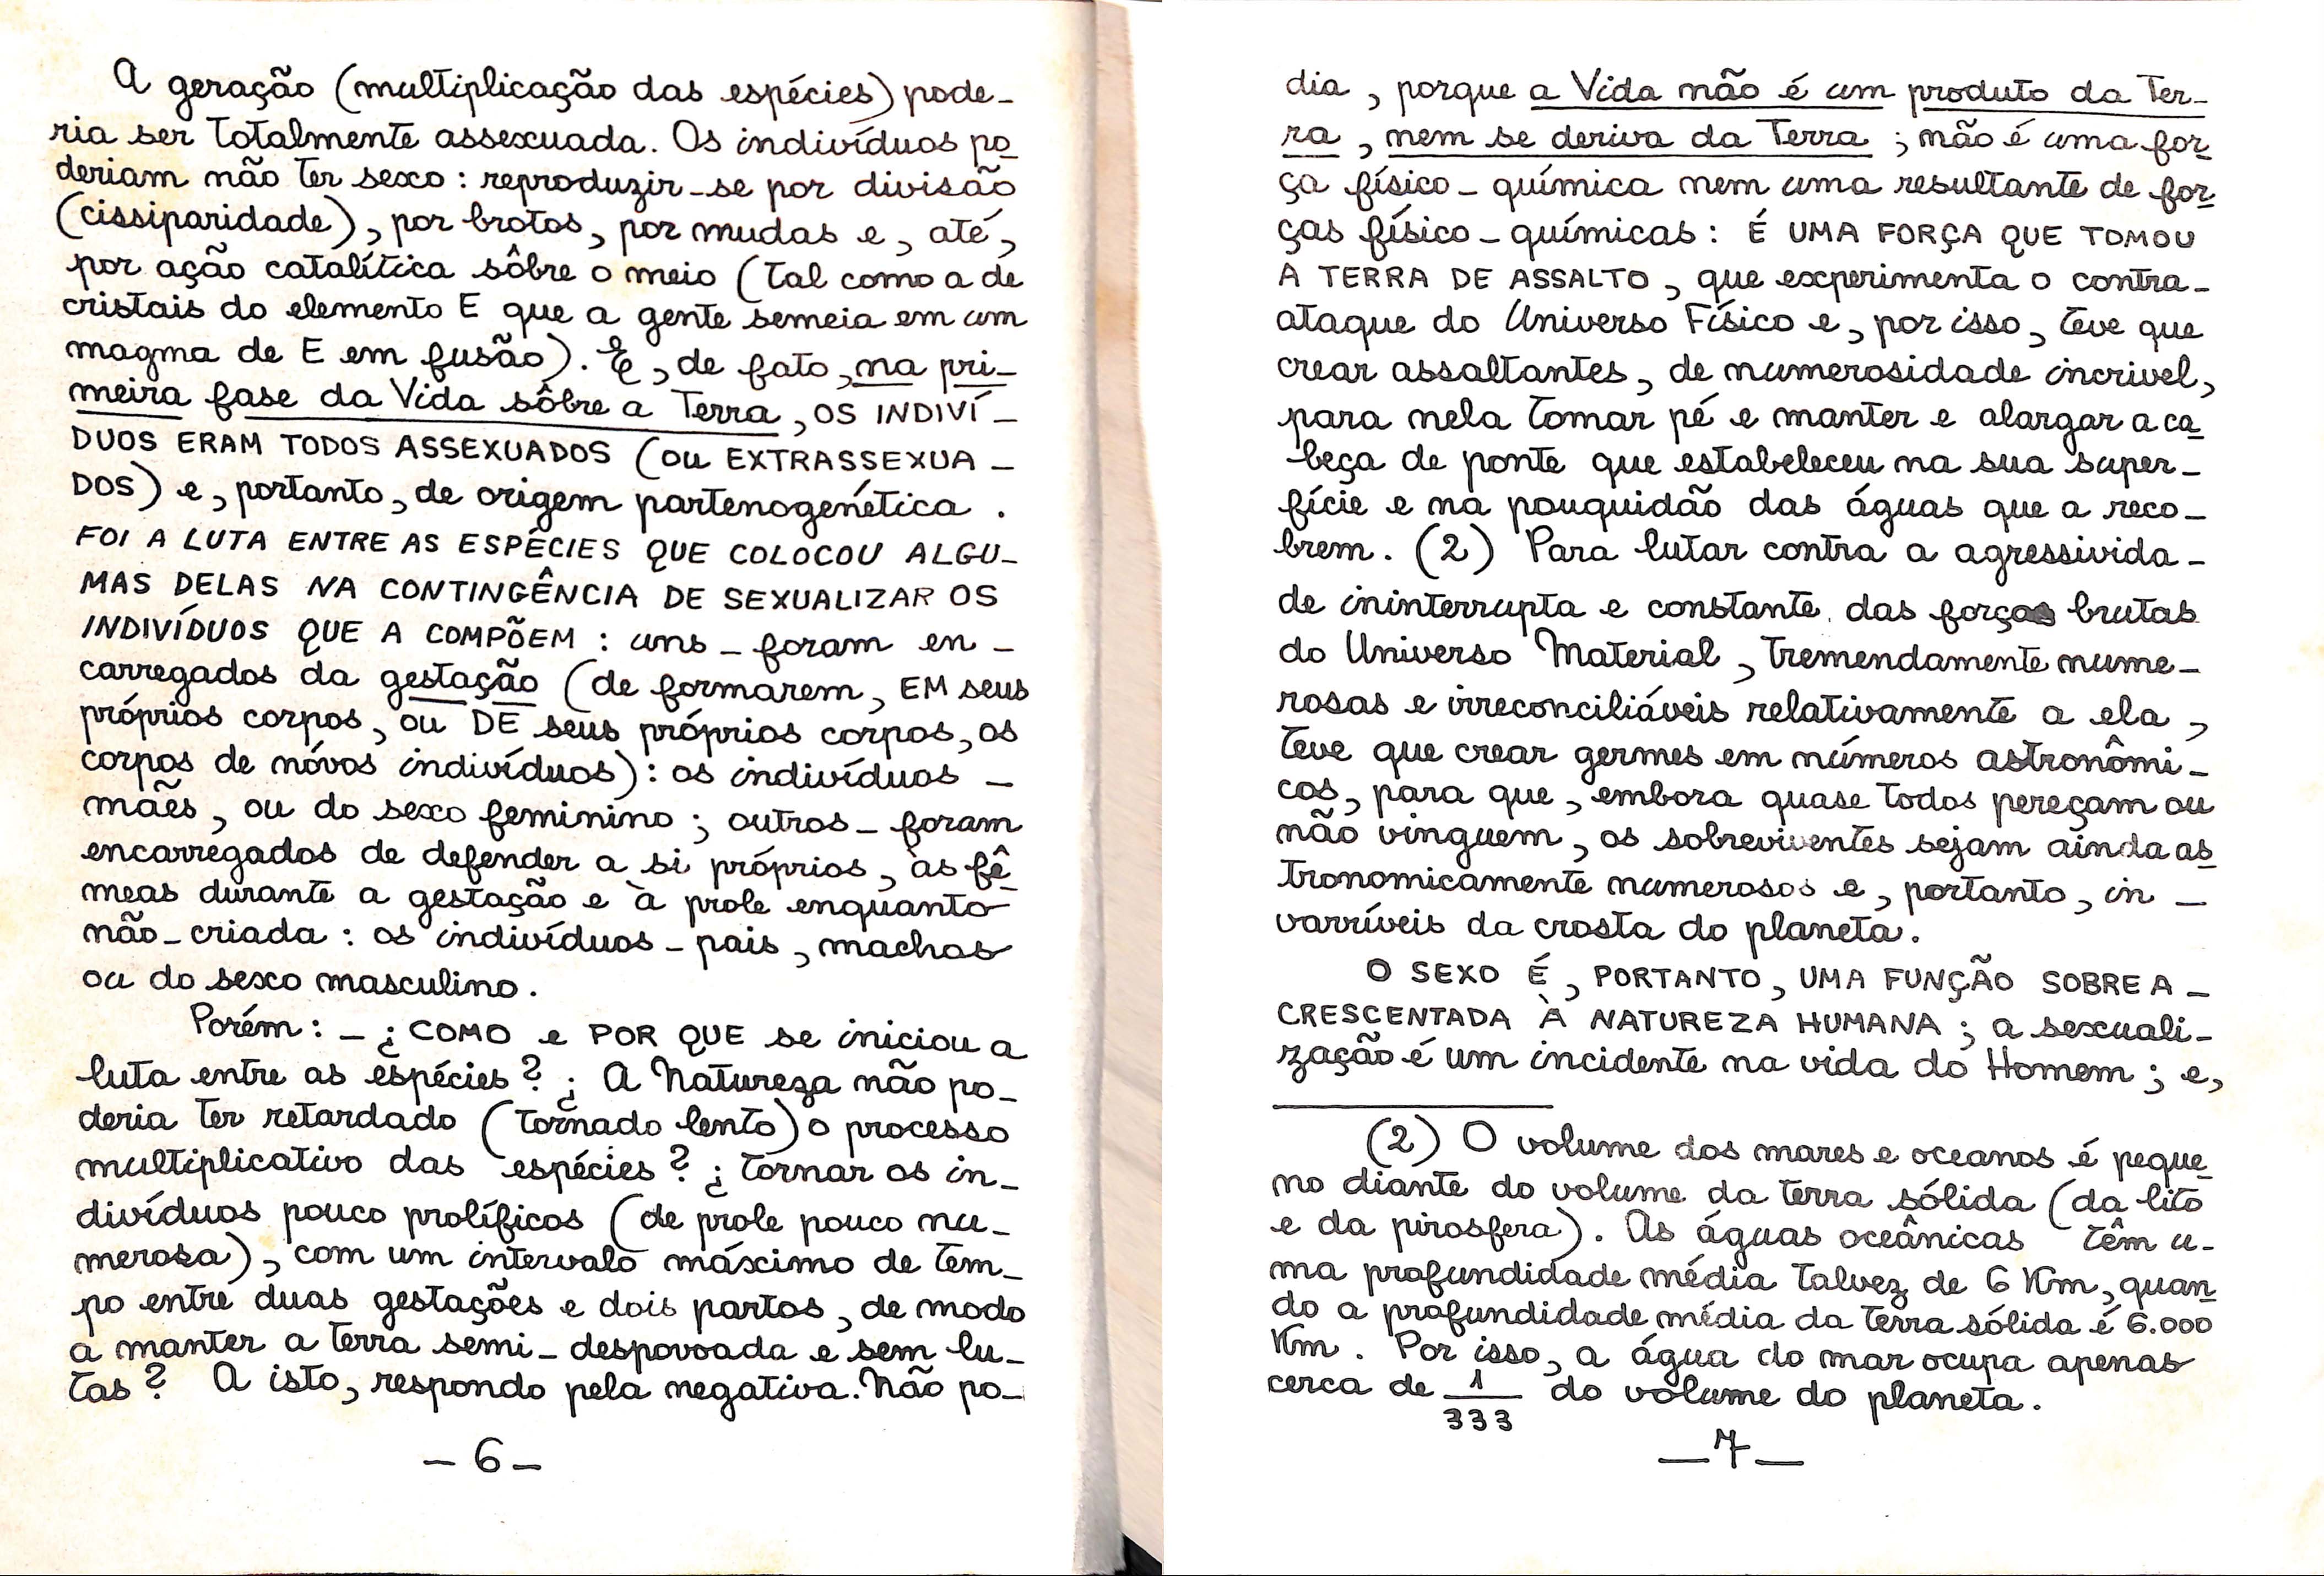 A geração (multiplicação das espécies) pode-
ria ser totalmente assexuada. Os indivíduos po
deriam não ter sexo : reproduzir-se por divisão
(cissiparidade), por brotos, por mudas e, até,
por ação catalítica sôbre o meio (tal como a de
cristais do elemento E que a gente semeia em um
magma de E em fusão). E, de fato, na pri-
meira fase da Vida sôbre a Terra, OS INDIVÍ-
DUOS ERAM TODOS ASSEXUADOS (OU EXTRASSEXUA-
DOS) e, portanto, de origem partenogenética.
FOI A LUTA ENTRE AS ESPÉCIES QUE COLOCOU ALGU-
MAS DELAS NA CONTINGÊNCIA DE SEXUALIZAR OS
INDIVÍDUOS QUE A COMPÕEM : uns - foram en-
carregados da gestação (de formarem, EM seus
próprios corpos, ou DE seus próprios corpos, os
corpos de nóvos indivíduos): os indivíduos -
mães, ou do sexo feminino ; outros - foram
encarregados de defender a si próprios, às fê
meas durante a gestação e à prole enquanto
não-criada : os indivíduos-pais, machos
ou do sexo masculino.
Porém : - ¿ COMO e POR QUE se iniciou a
luta entre as espécies ? ¿ A Natureza não po-
deria ter retardado (tornado lento) o processo
multiplicativo das espécies ? ¿ tornar os in-
divíduos pouco prolíficos (de prole pouco nu-
merosa), com um intervalo máximo de tem-
po entre duas gestações e dois partos, de modo
a manter a terra semi-despovoada e sem lu-
tas ? A isto, respondo pela negativa. Não po-
- 6 -
dia, porque a Vida não é um produto da Ter-
ra, nem se deriva da Terra ; não é uma for
ça físico-química nem uma resultante de for
ças físico-químicas : É UMA FORÇA QUE TOMOU
A TERRA DE ASSALTO, que experimenta o contra-
ataque do Universo Físico e, por isso, teve que
crear assaltantes, de numerosidade incrivel,
para nela tomar pé e manter e alargar a ca
beça de ponte que estabeleceu na sua super-
fície e na pouquidão das águas que a reco-
brem. (2) Para lutar contra a agressivida-
de ininterrupta e constante das forças brutas
do Universo Material, tremendamente nume-
rosas e irreconciliáveis relativamente a ela,
teve que crear germes em números astronômi-
cos, para que, embora quase todos pereçam ou
não vinguem, os sobreviventes sejam ainda as
tronomicamente numerosos e, portanto, in-
varríveis da crosta do planeta.
O SEXO É, PORTANTO, UMA FUNÇÃO SOBREA-
CRESCENTADA À NATUREZA HUMANA ; a sexuali-
zação é um incidente na vida do Homem ; e,
(2) O volume dos mares e oceanos é peque
no diante do volume da terra sólida (da lito
e da pirosfera). As águas oceânicas têm u-
ma profundidade média talvez de 6 Km, quan
do a profundidade média da terra sólida é 6.000
Km. Por isso, a água do mar ocupa apenas
cerca de 1/333 do volume do planeta.
- 7 -